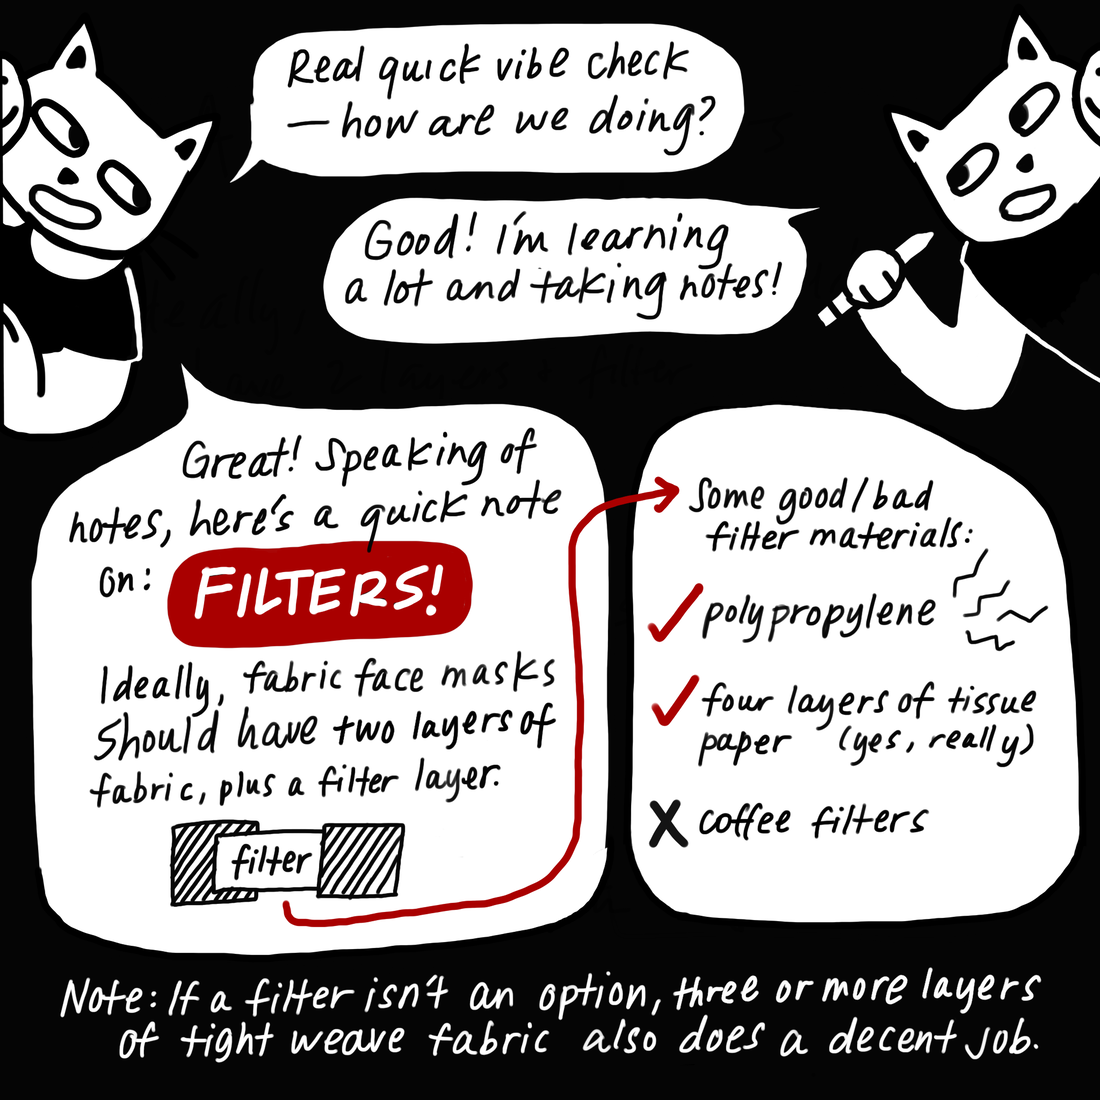 Real quick vibe check
— how are we doing?
Good! I'm learning
a lot and taking notes!
Great! Speaking of
notes, here's a quick note
on: FILTERS!
Ideally, fabric face masks
should have two layers of
fabric, plus a filter layer.
filter
Some good/bad
filter materials:
polypropylene
four layers of tissue
paper (yes, really)
X coffee filters
Note: If a filter isn't an option, three or more layers
of tight weave fabric also does a decent job.